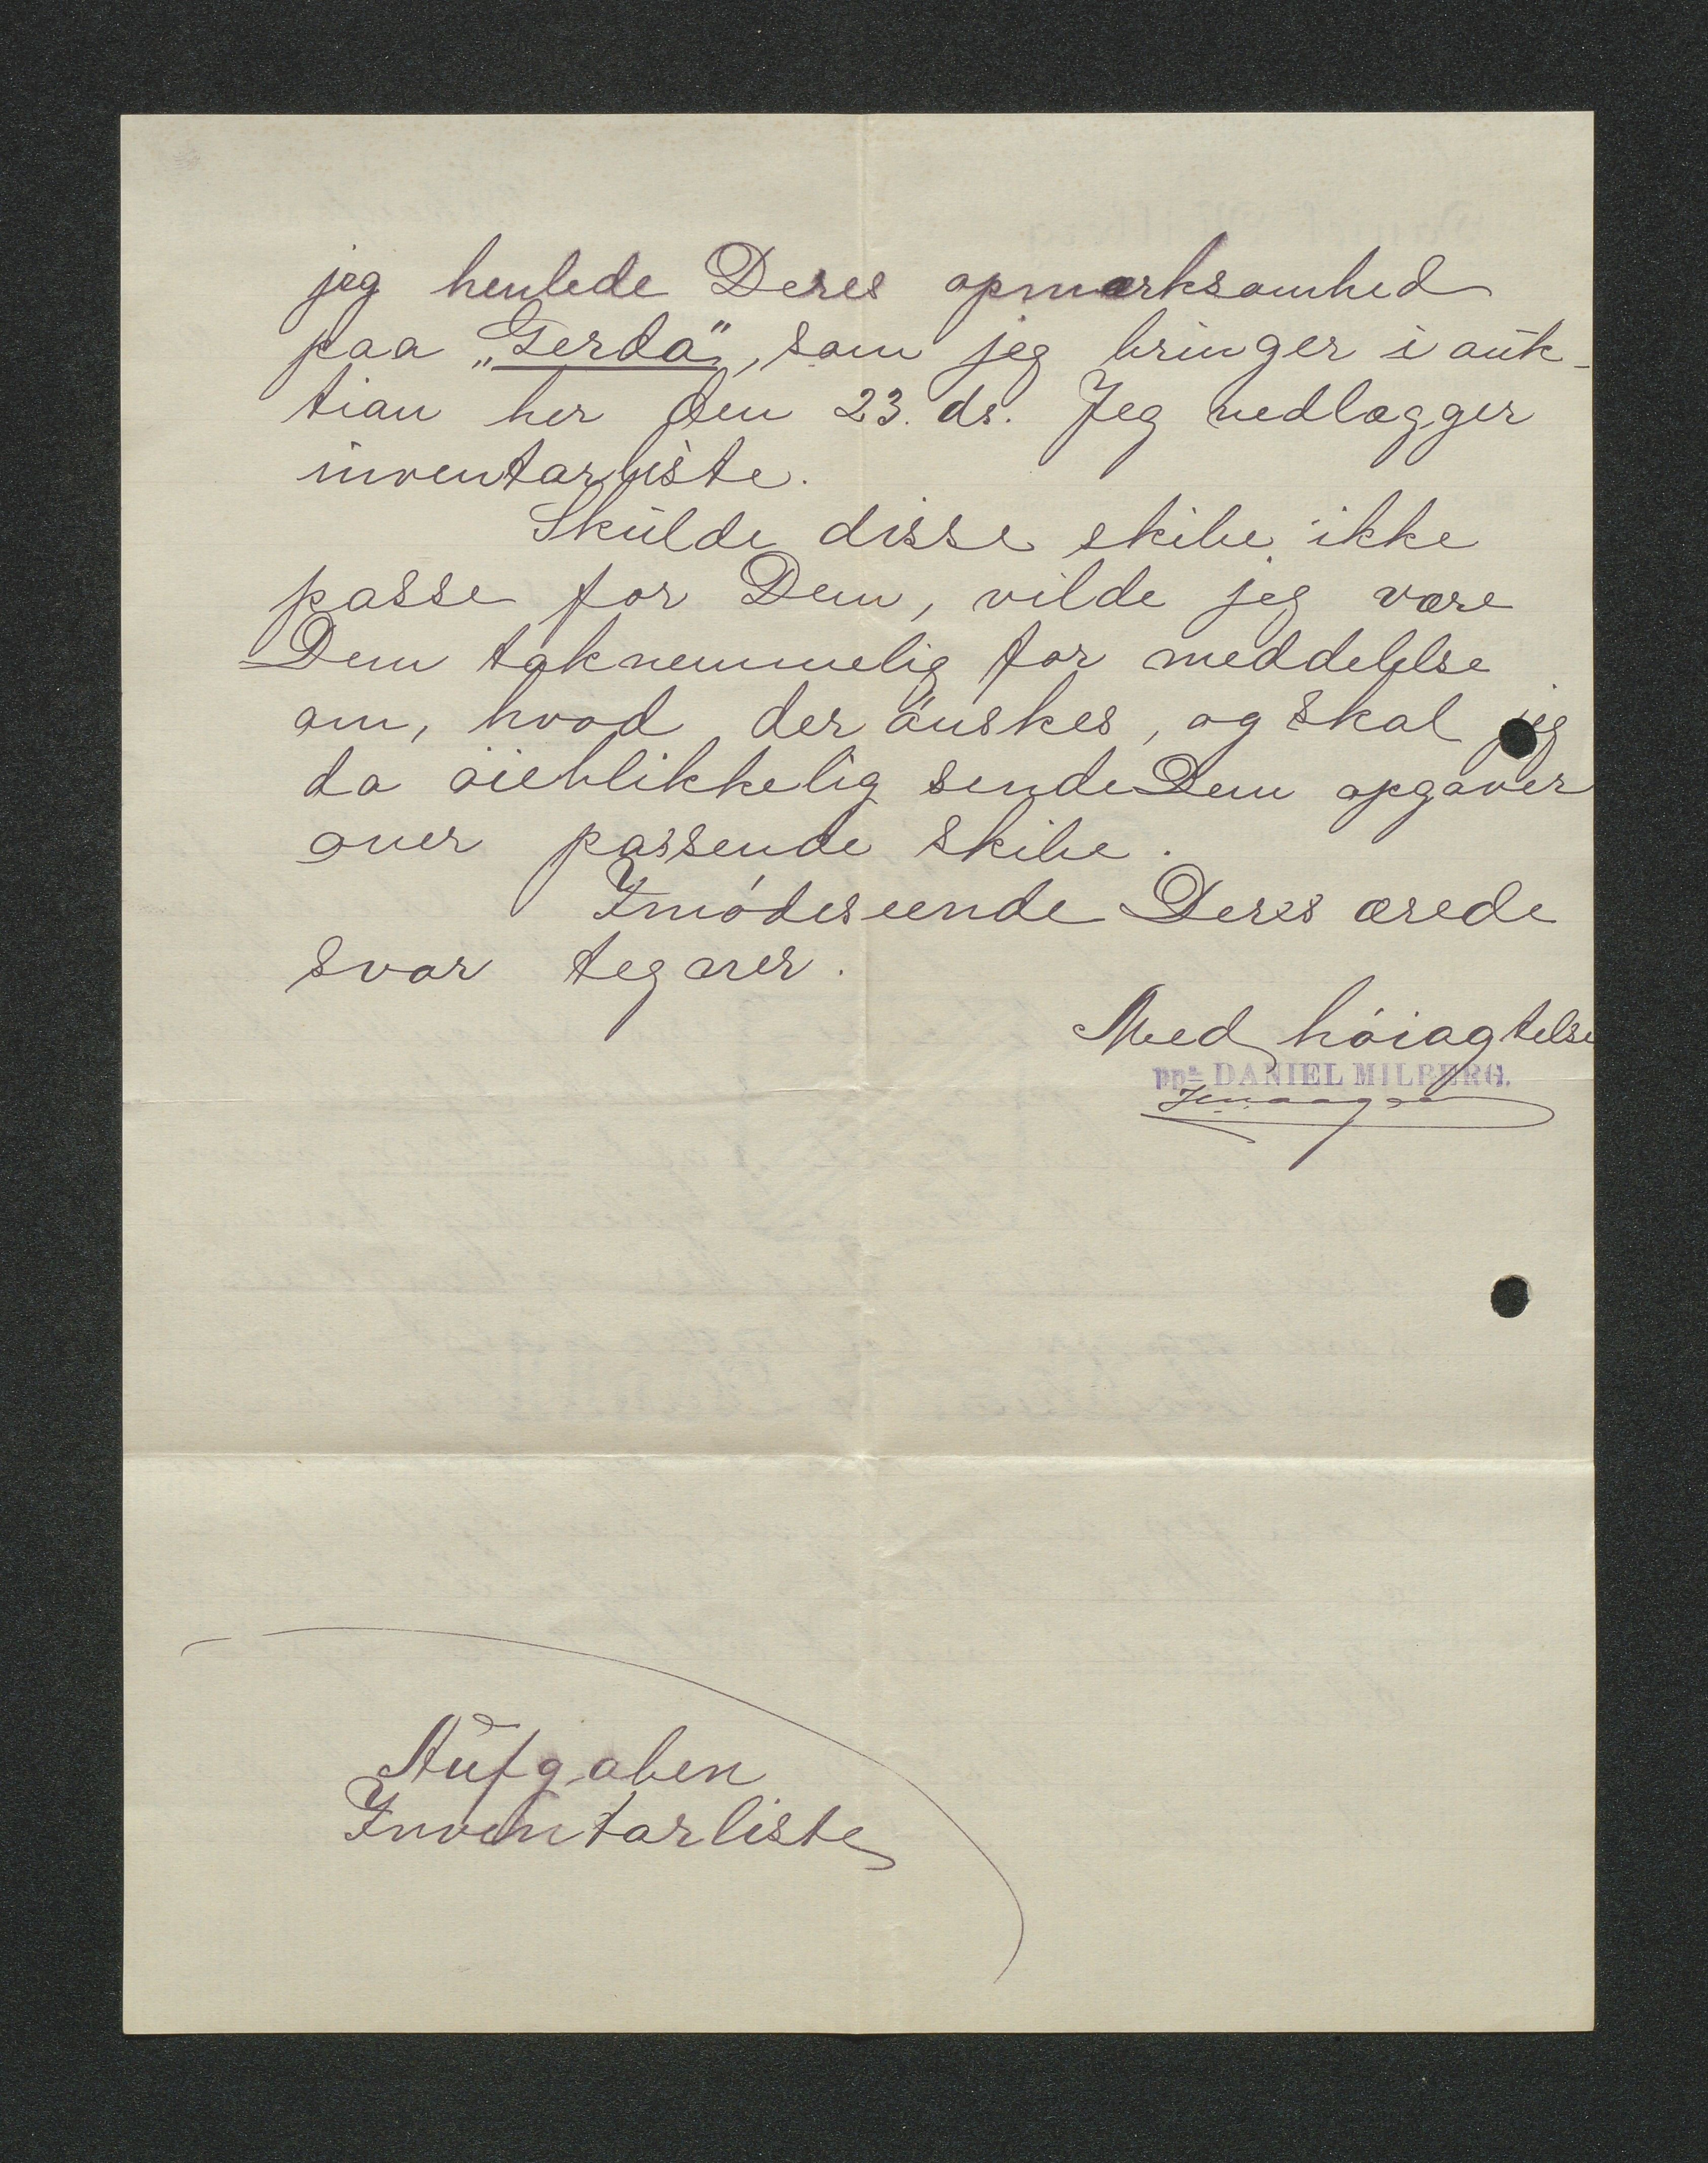 jeg henlede Deres opmærksomhed
paa „Gerda", som jeg bringer i auk-
tion her den 23. ds. Jeg vedlægger
inventarliste.
Skulde disse skibe ikke
passe for Dem, vilde jeg være
Dem taknemmelig for meddelelse
om, hvad der ónskes, og skal jeg
da óieblikkelig sende Dem opgaver
over passende skibe.
Imódeseende Deres ærede
svar tegner.
Med hóiagtelse
ppa DANIEL MILBERG.
Aufgaben
Inventarliste